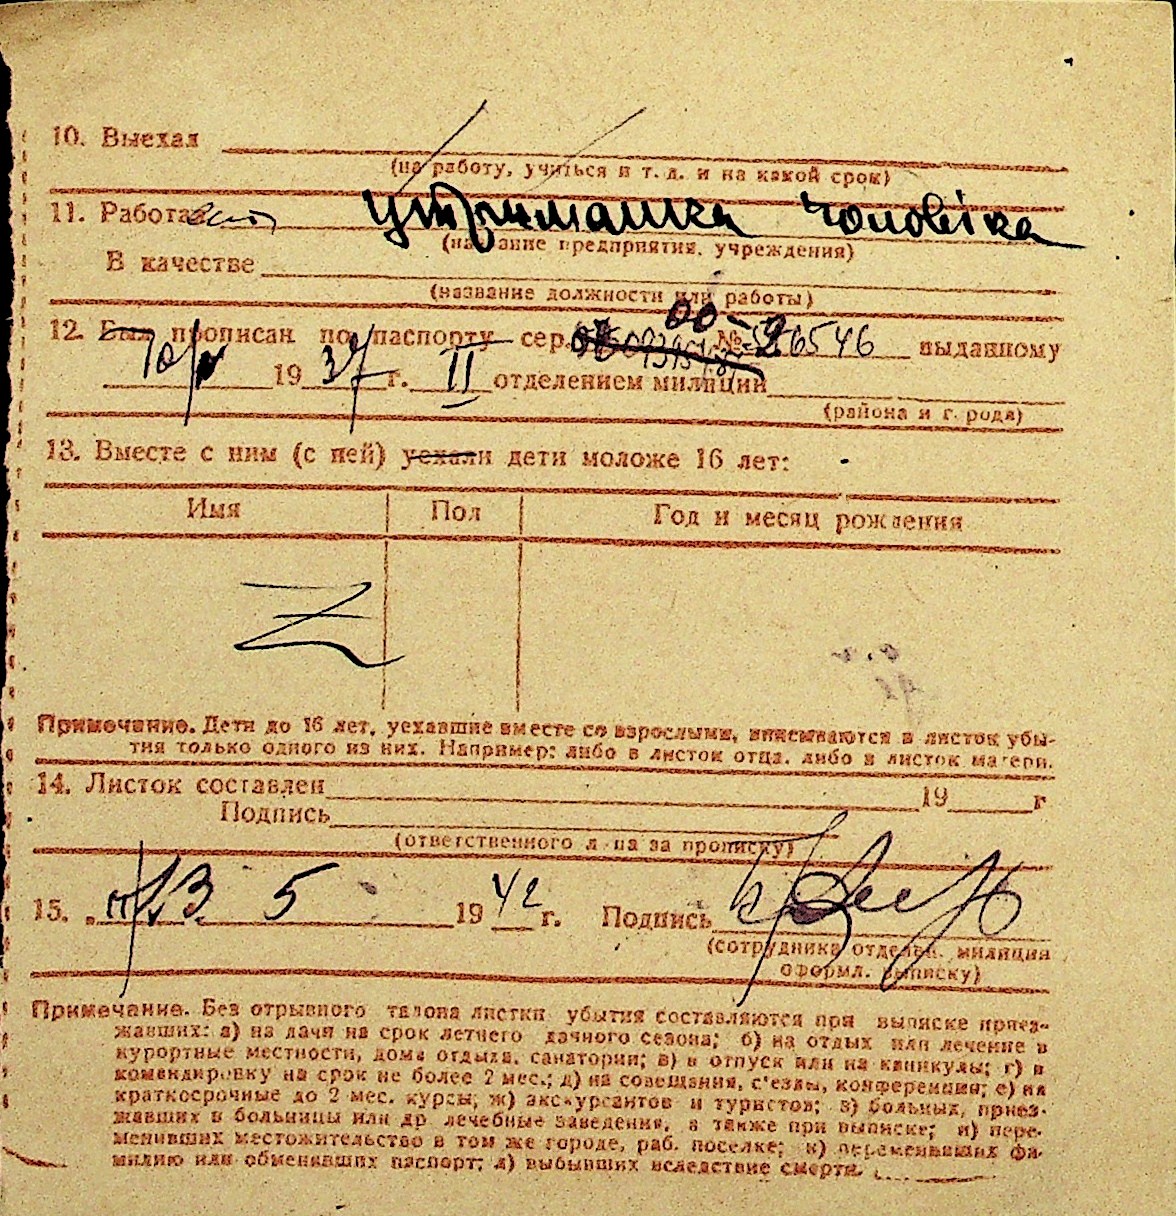 10. Выехал
(на работу, учиться и т. д. и на какой срок)
11. Работал утриманка чоловіка
(название предприятия, учреждения)
В качестве
(название должности или работы)
12. Был прописан по паспорту сер. 00-2 № 526546 выданному
10/V 1937 г. II отделением милиции
(района и города)
13. Вместе с ним (с ней) уехали дети моложе 16 лет:
Имя Пол Год и месяц рождения
Z
Примечание. Дети до 16 лет, уехавшие вместе со взрослыми, вписываются в листок убы-
тия только одного из них. Например: либо в листок отца, либо в листок матери.
14. Листок составлен 19 г
Подпись
(ответственного лица за прописку)
15. 13 5 1942 г. Подпись
(сотрудника отделен. милиции
оформл. выписку)
Примечание. Без отрывного талона листки убытия составляются при выписке приез-
жавших: а) на дачи на срок летнего дачного сезона; б) на отдых или лечение в
курортные местности, дома отдыха, санатории; в) в отпуск или на каникулы; г) в
командировку на срок не более 2 мес.; д) на совещания, с'езды, конференции; е) на
краткосрочные до 2 мес. курсы; ж) экскурсантов и туристов; з) больных, приез-
жавших в больницы или др лечебные заведения, а также при выписке; и) пере-
менивших местожительство в том же городе, раб. поселке; к) переменивших фа-
милию или обменявших паспорт; л) выбывших вследствие смерти.